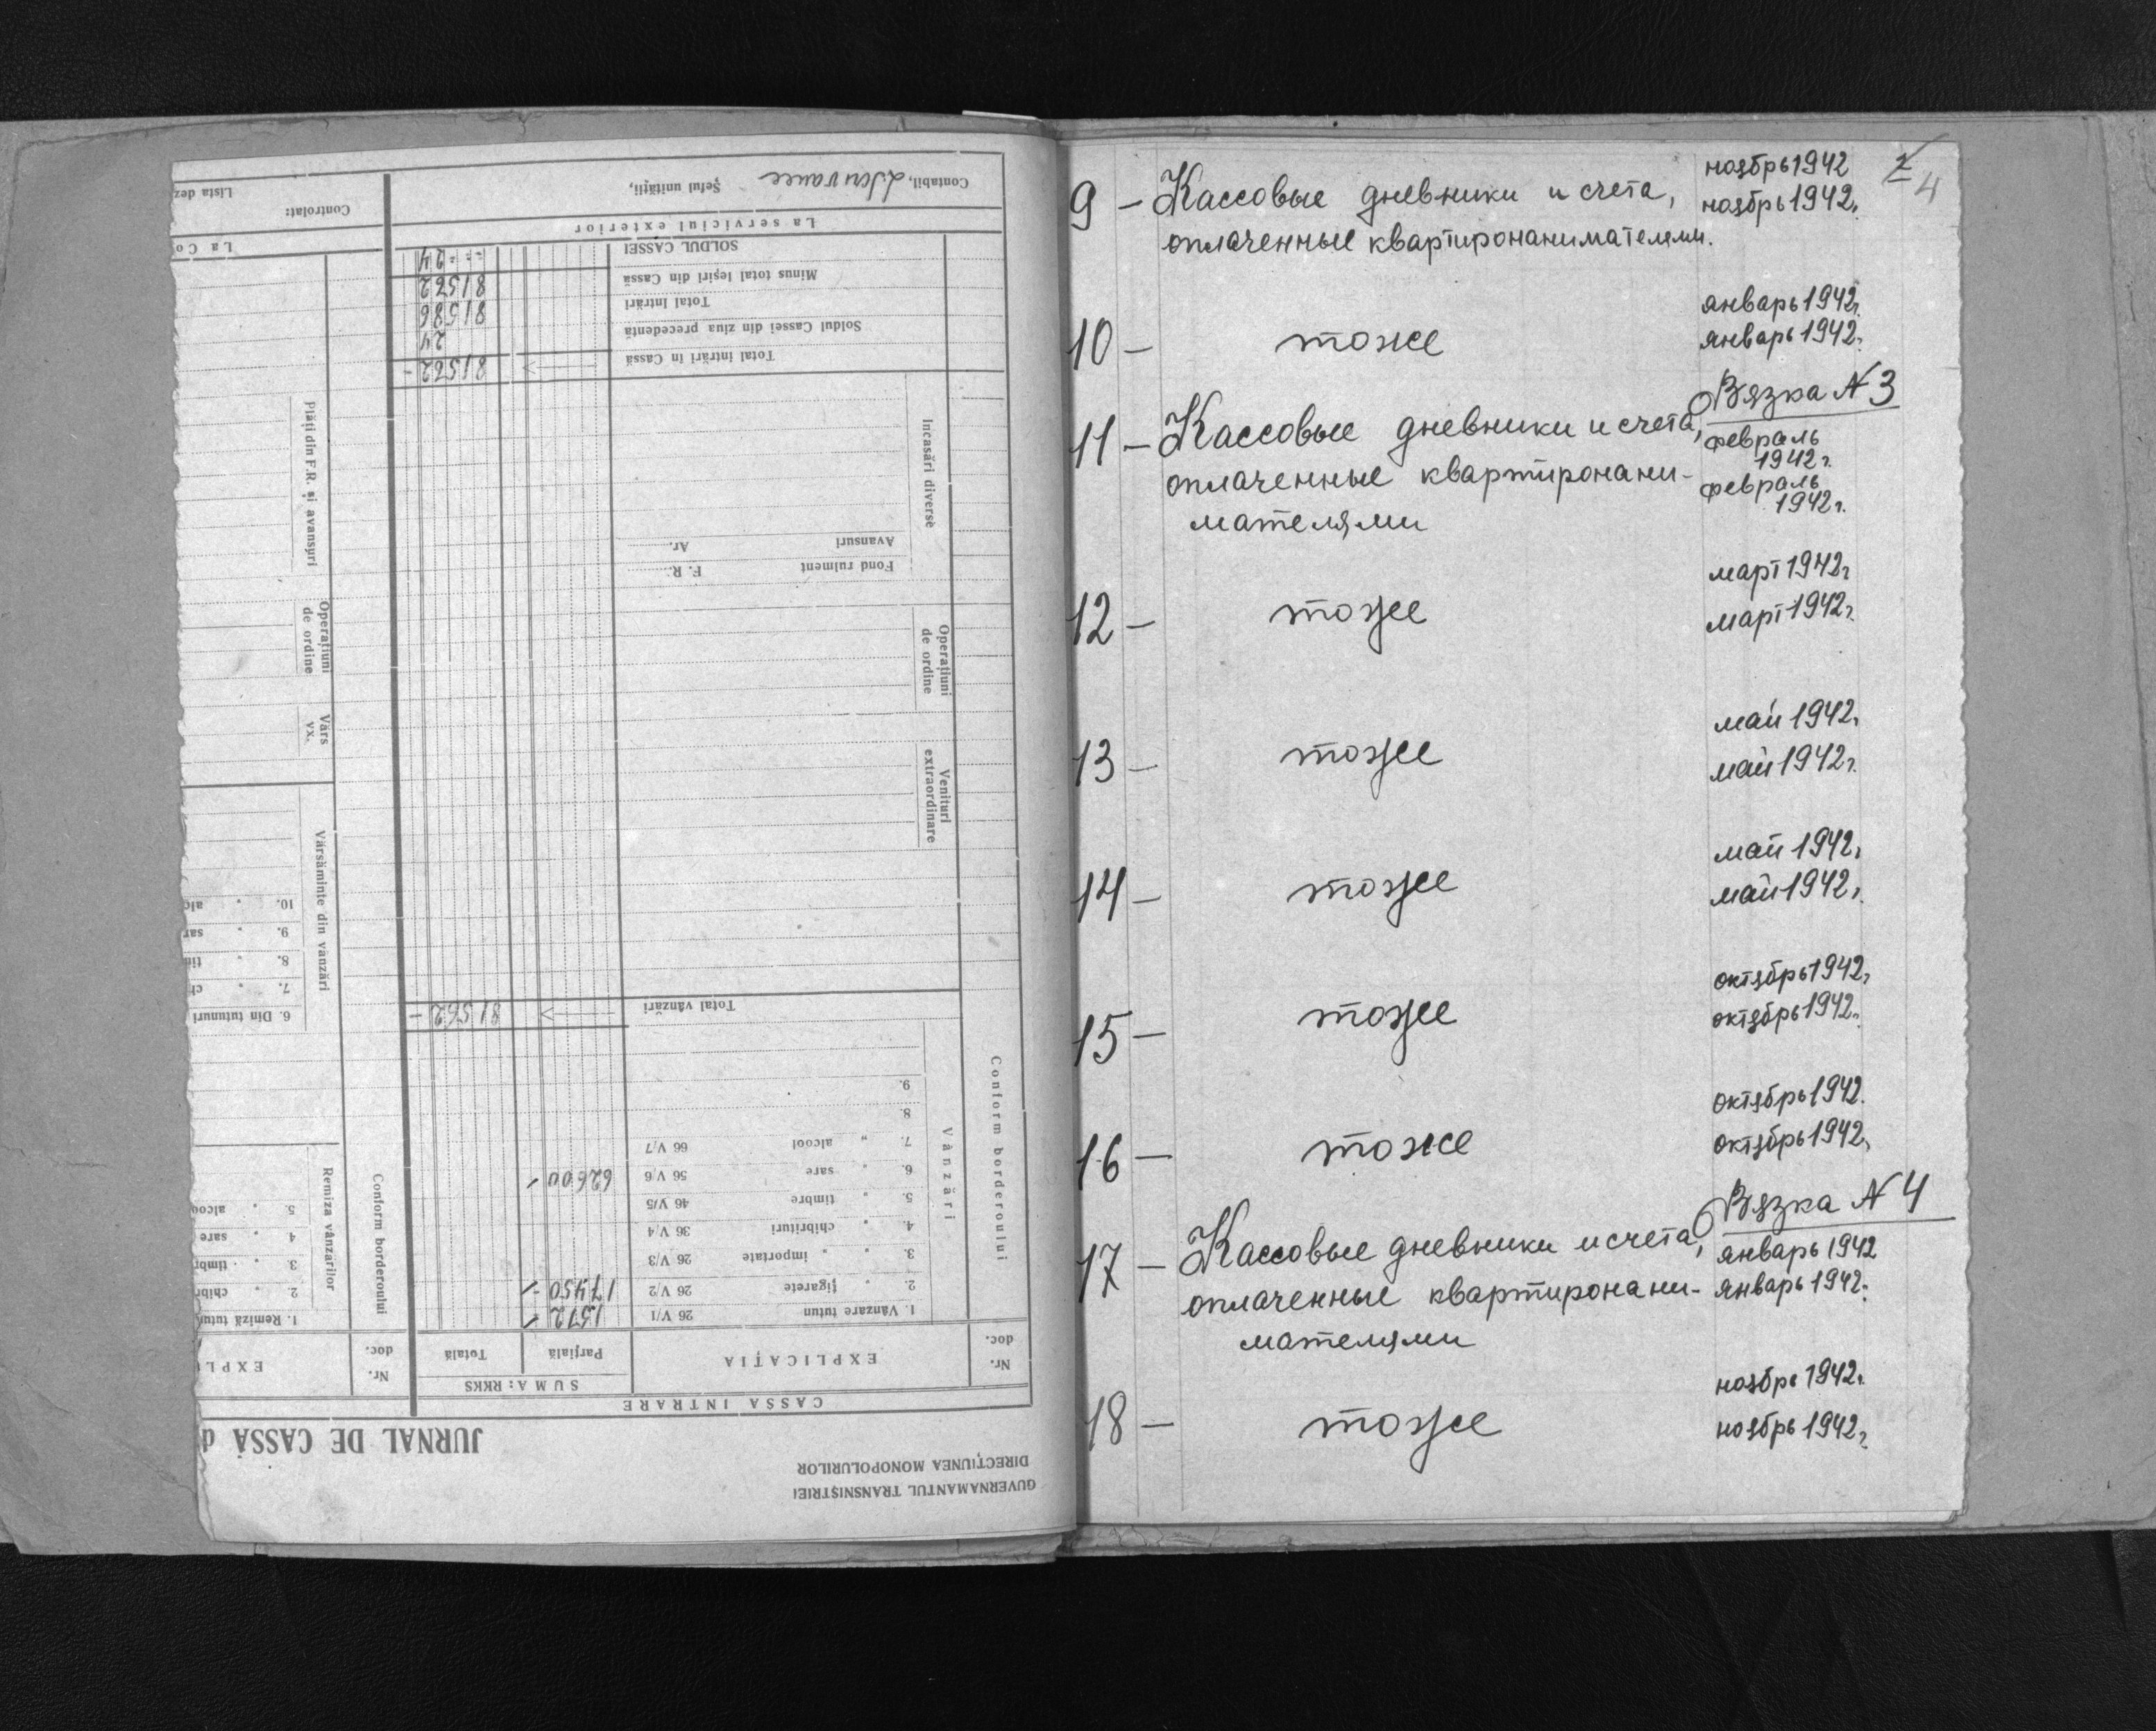 GUVERNAMANTUL TRANSNISTRIEI
DIRECȚIUNEA MONOPOLURILOR
JURNAL DE CASSĂ d
CASSA INTRARE
Nr. doc.
EXPLICAȚIA
SUMA: RKKS
Parțială
Totală
Nr. doc.
Conform borderoului
Vânzări
1. Vânzare tutun 26 V/1 1512 -
2. „ țigarete 26 V/2 17450 -
3. „ „ importate 26 V/3
4. „ chibrituri 36 V/4
5. „ timbre 46 V/5
6. „ sare 56 V/6 62600 -
7. „ alcool 66 V/7
8.
9.
Total vânzări 81562 -
Venituri extraordinare
Operațiuni de ordine
Incasări diverse
Fond rulment F. R.
Avansuri Ar.
Total intrări în Cassă 81562 -
Soldul Cassei din ziua precedentă 24
Total Intrări 81586
Minus total Ieșiri din Cassă 81562
SOLDUL CASSEI 24
La serviciul exterior
Contabil,
Șeful unității,
Conform borderoului
Remiza vânzărilor
1. Remiză tutun
2. „ chibr
3. „ timbr
4 „ sare
5. „ alcoo
Vărsăminte din vânzări
6. Din tutunuri
7. „ ch
8. „ tim
9. „ sar
10. „ alc
Vărs vx.
Operațiuni de ordine
Plăți din F.R. și avansuri
La Co
Controlat:
Lista dez
4
9 – Кассовые дневники и счета, ноябрь 1942
оплаченные квартиронанимателями. ноябрь 1942г.
10 – тоже январь 1942г.
январь 1942г.
Вязка N 3
11 – Кассовые дневники и счета, февраль 1942г.
оплаченные квартиронани- февраль 1942г.
мателями
12 – тоже март 1942г
март 1942г.
13 – тоже май 1942г.
май 1942г.
14 – тоже май 1942г.
май 1942г.
15 – тоже октябрь 1942г.
октябрь 1942г.
16 – тоже октябрь 1942.
октябрь 1942г.
Вязка N 4
17 – Кассовые дневники и счета, январь 1942
оплаченные квартиронани- январь 1942г.
мателями
18 – тоже ноябрь 1942г.
ноябрь 1942г.